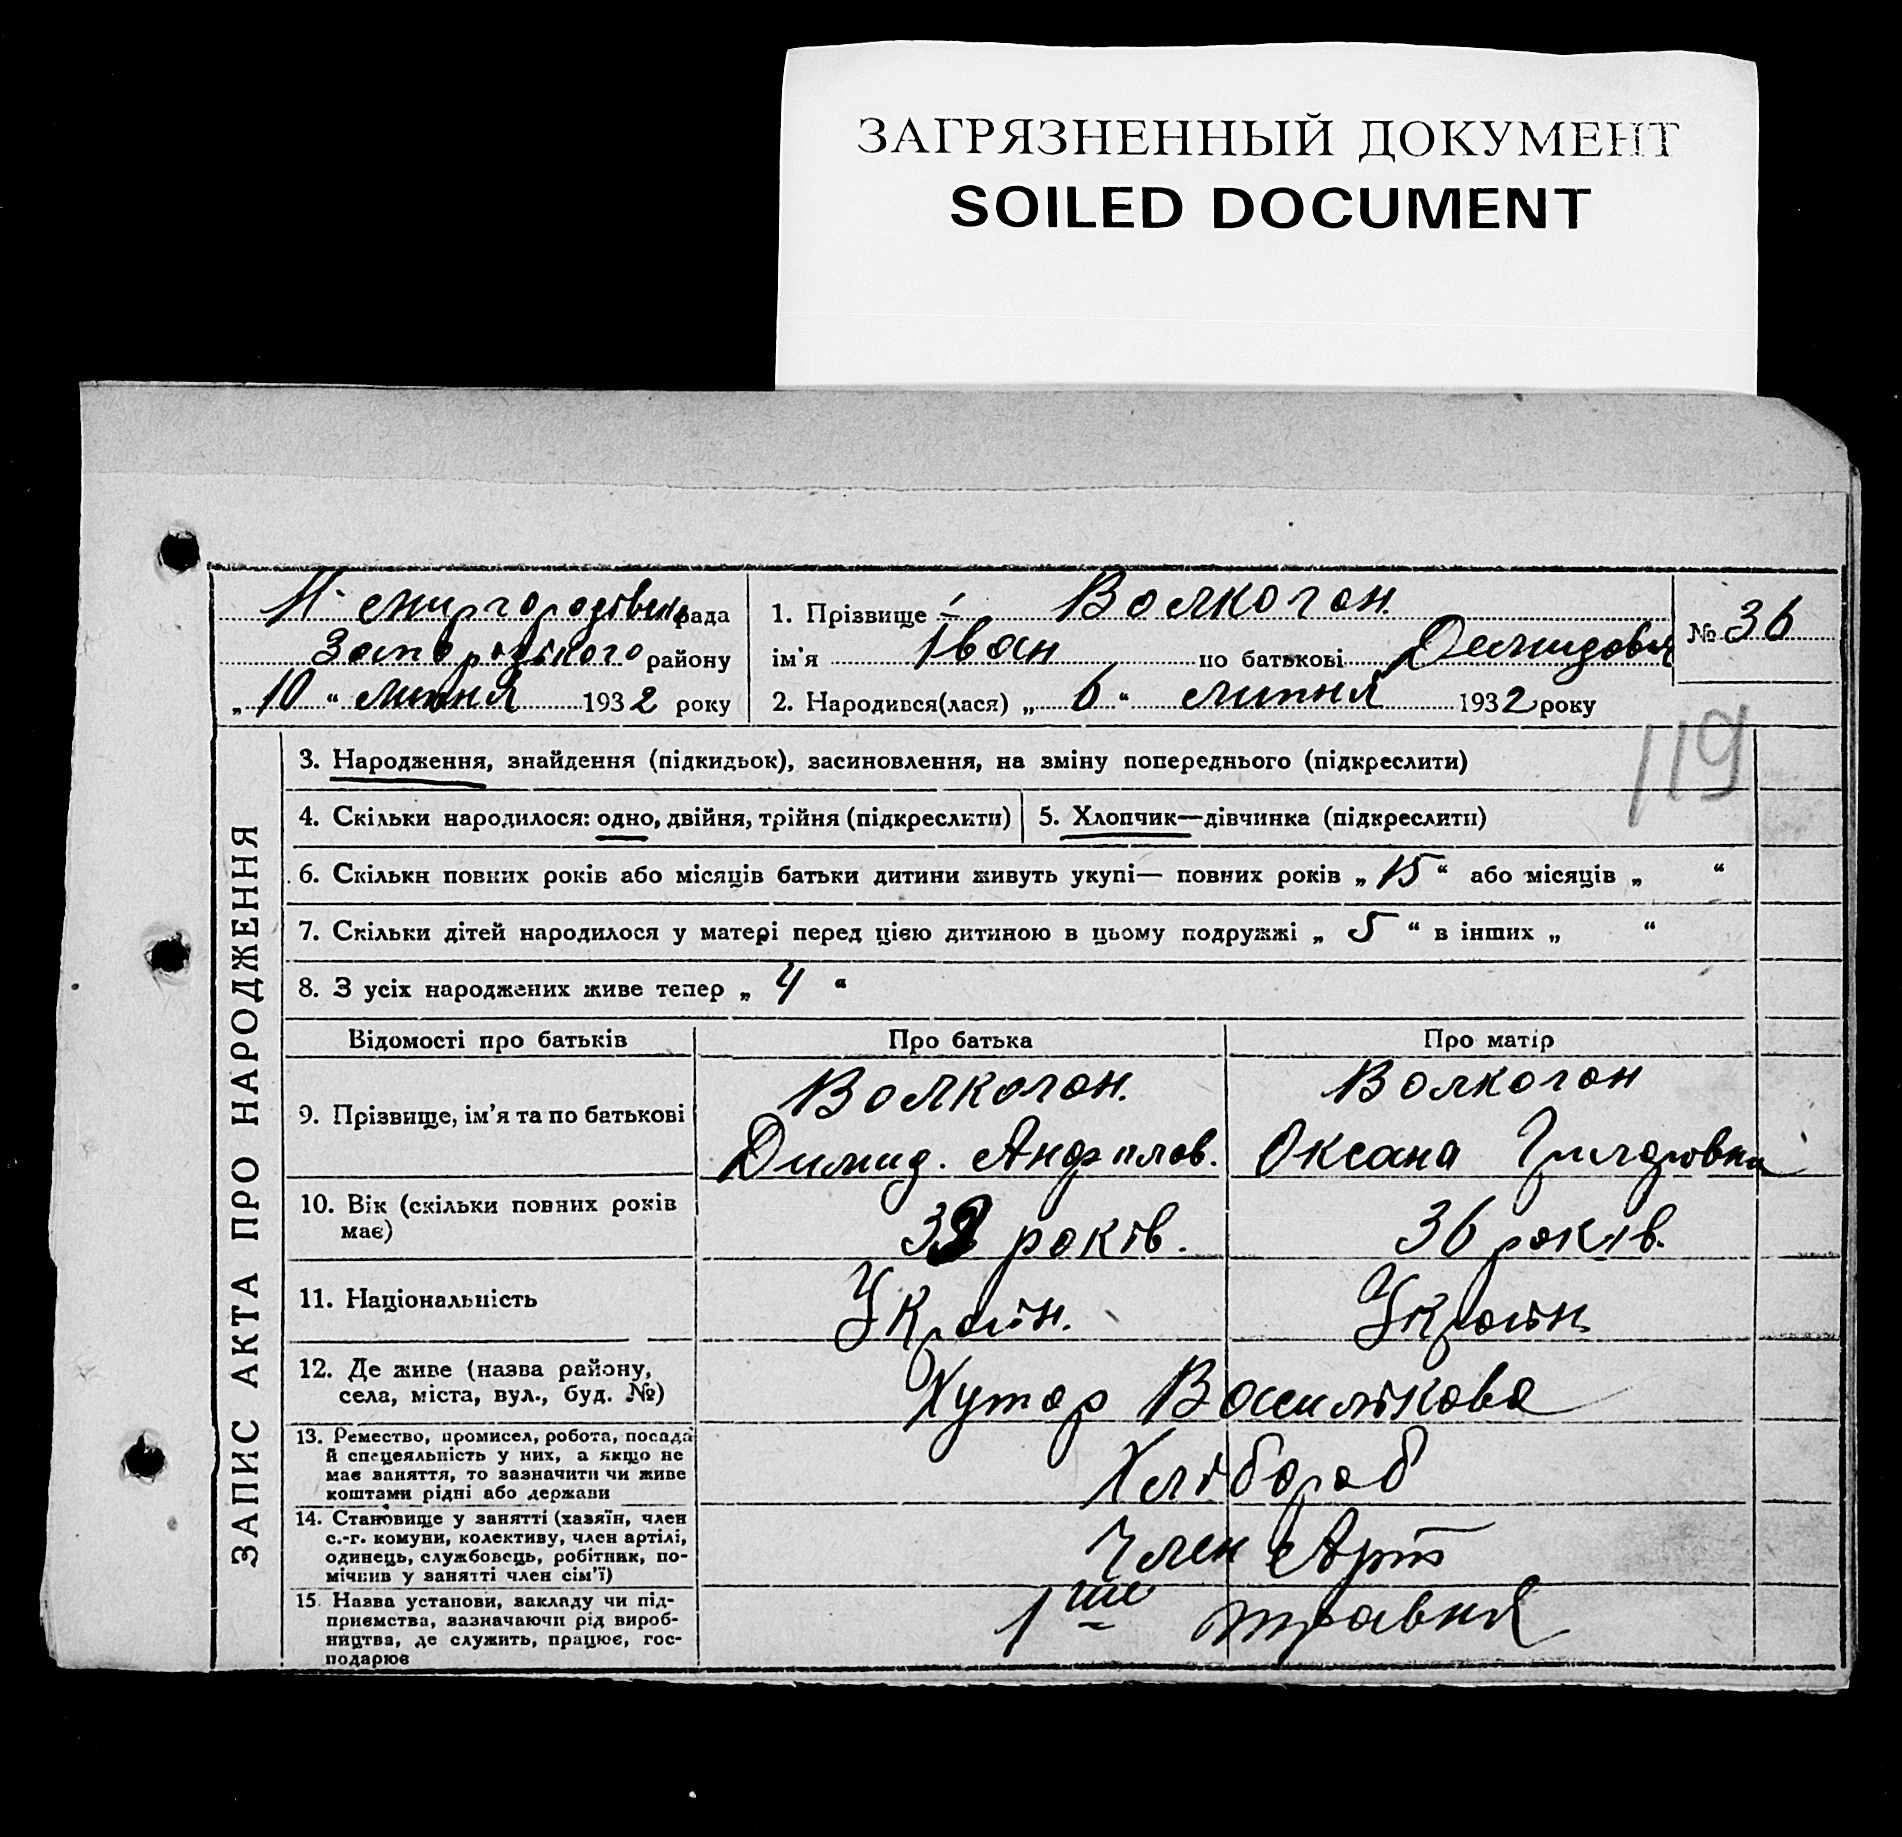 ЗАГРЯЗНЕННЫЙ ДОКУМЕНТ
SOILED DOCUMENT
рада
району
„ 10 “ липня 1932 року
1. Прізвище Волкогон.
ім'я Іван по батькові Демидович
2. Народився(лася) „ 6 “ липня 1932 року
№ 36
119
ЗАПИС АКТА ПРО НАРОДЖЕННЯ
3. Народження, знайдення (підкидьок), засиновлення, на зміну попереднього (підкреслити)
4. Скільки народилося: одно, двійня, трійня (підкреслити)
5. Хлопчик—дівчинка (підкреслити)
6. Скільки повних років або місяців батьки дитини живуть укупі— повних років „ 15 “ або місяців „ “
7. Скільки дітей народилося у матері перед цією дитиною в цьому подружжі „ 5 “ в інших „ “
8. З усіх народжених живе тепер „ 4 “
Відомості про батьків
Про батька
Про матір
9. Прізвище, ім'я та по батькові
Волкогон.
Димид.
Волкогон
Оксана
10. Вік (скільки повних років
має)
років.
36 років.
11. Національність
Україн.
Україн.
12. Де живе (назва району,
села, міста, вул., буд. №)
Хутор Василькова
13. Ремество, промисел, робота, посада
й спецеяльність у них, а якщо не
має заняття, то зазначити чи живе
коштами рідні або держави
Хлібороб
14. Становище у занятті (хазяїн, член
с.-г. комуни, колективу, член артілі,
одинець, службовець, робітник, по-
мічнив у занятті член сім'ї)
Член Арт
15. Назва установи, закладу чи під-
приємства, зазначаючи рід вироб-
ництва, де служить, працює, гос-
подарює
1ше травня